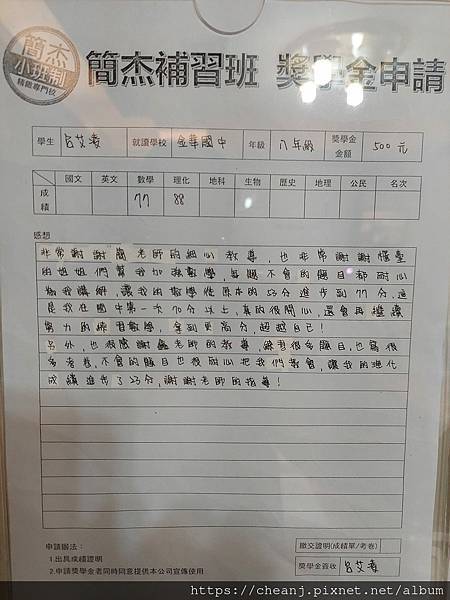 簡杰
小班制
精緻專門校
簡杰補習班 獎學金申請
學生 呂艾凌 就讀學校 金華國中 年級 八年級 獎學金金額 500元
國文 英文 數學 理化 地科 生物 歷史 地理 公民 名次
成績 77 88
感想
非常謝謝簡老師的細心教導,也非常謝謝櫃臺
的姐姐們幫我加強數學,每題不會的題目都耐心
為我講解,讓我的數學從原本的53分進步到77分,這
是我在國中第一次70分以上,真的很開心,還會再繼續
努力的練習數學,拿到更高分,超越自己!
另外,也很感謝 老師的教導,練習很多題目,也寫很
多考卷,不會的題目也很耐心把我們教會,讓我的理化
成績進步了23分,謝謝老師的指導!
申請辦法:
1.出具成績證明
2.申請獎學金者同時同意提供本公司宣傳使用
繳交證明(成績單/考卷)
獎學金簽收 呂艾凌
https://cheanj.pixnet.net/album